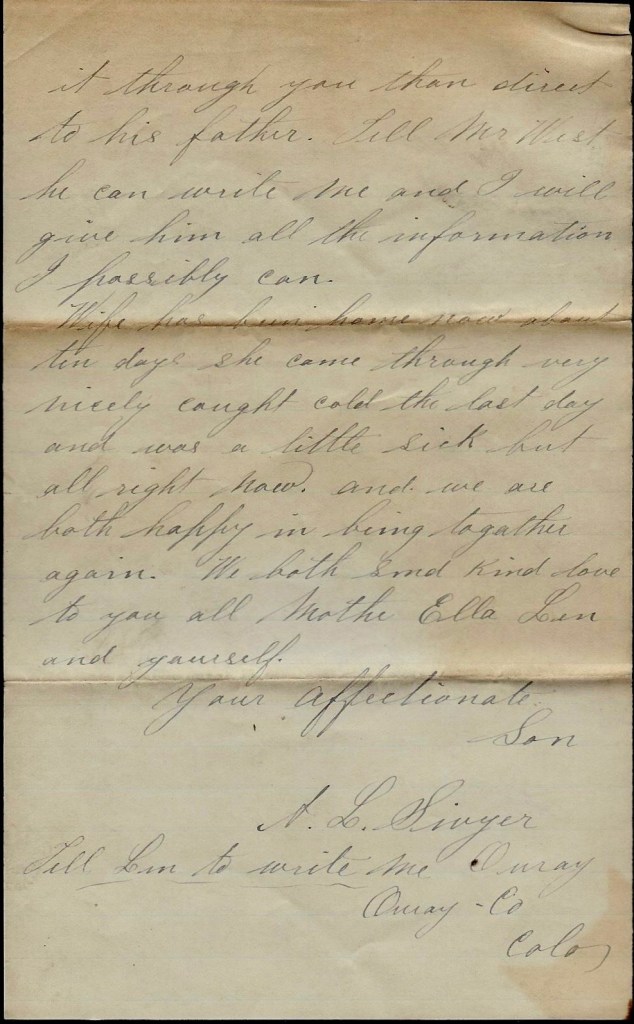 it through you than direct
to his father. Tell Mr West
he can write me and I will
give him all the information
I possibly can.
Wife has bin home now about
tin days she came through very
nicely caught cold the last day
and was a little sick but
all right now. and we are
both happy in being togather
again. We both send kind love
to you all Mothe Ella Len
and yourself.
Your affectionate
Son
A. L. Sivyer
Tell Len to write me Ouray
Ouray - Co
Colo